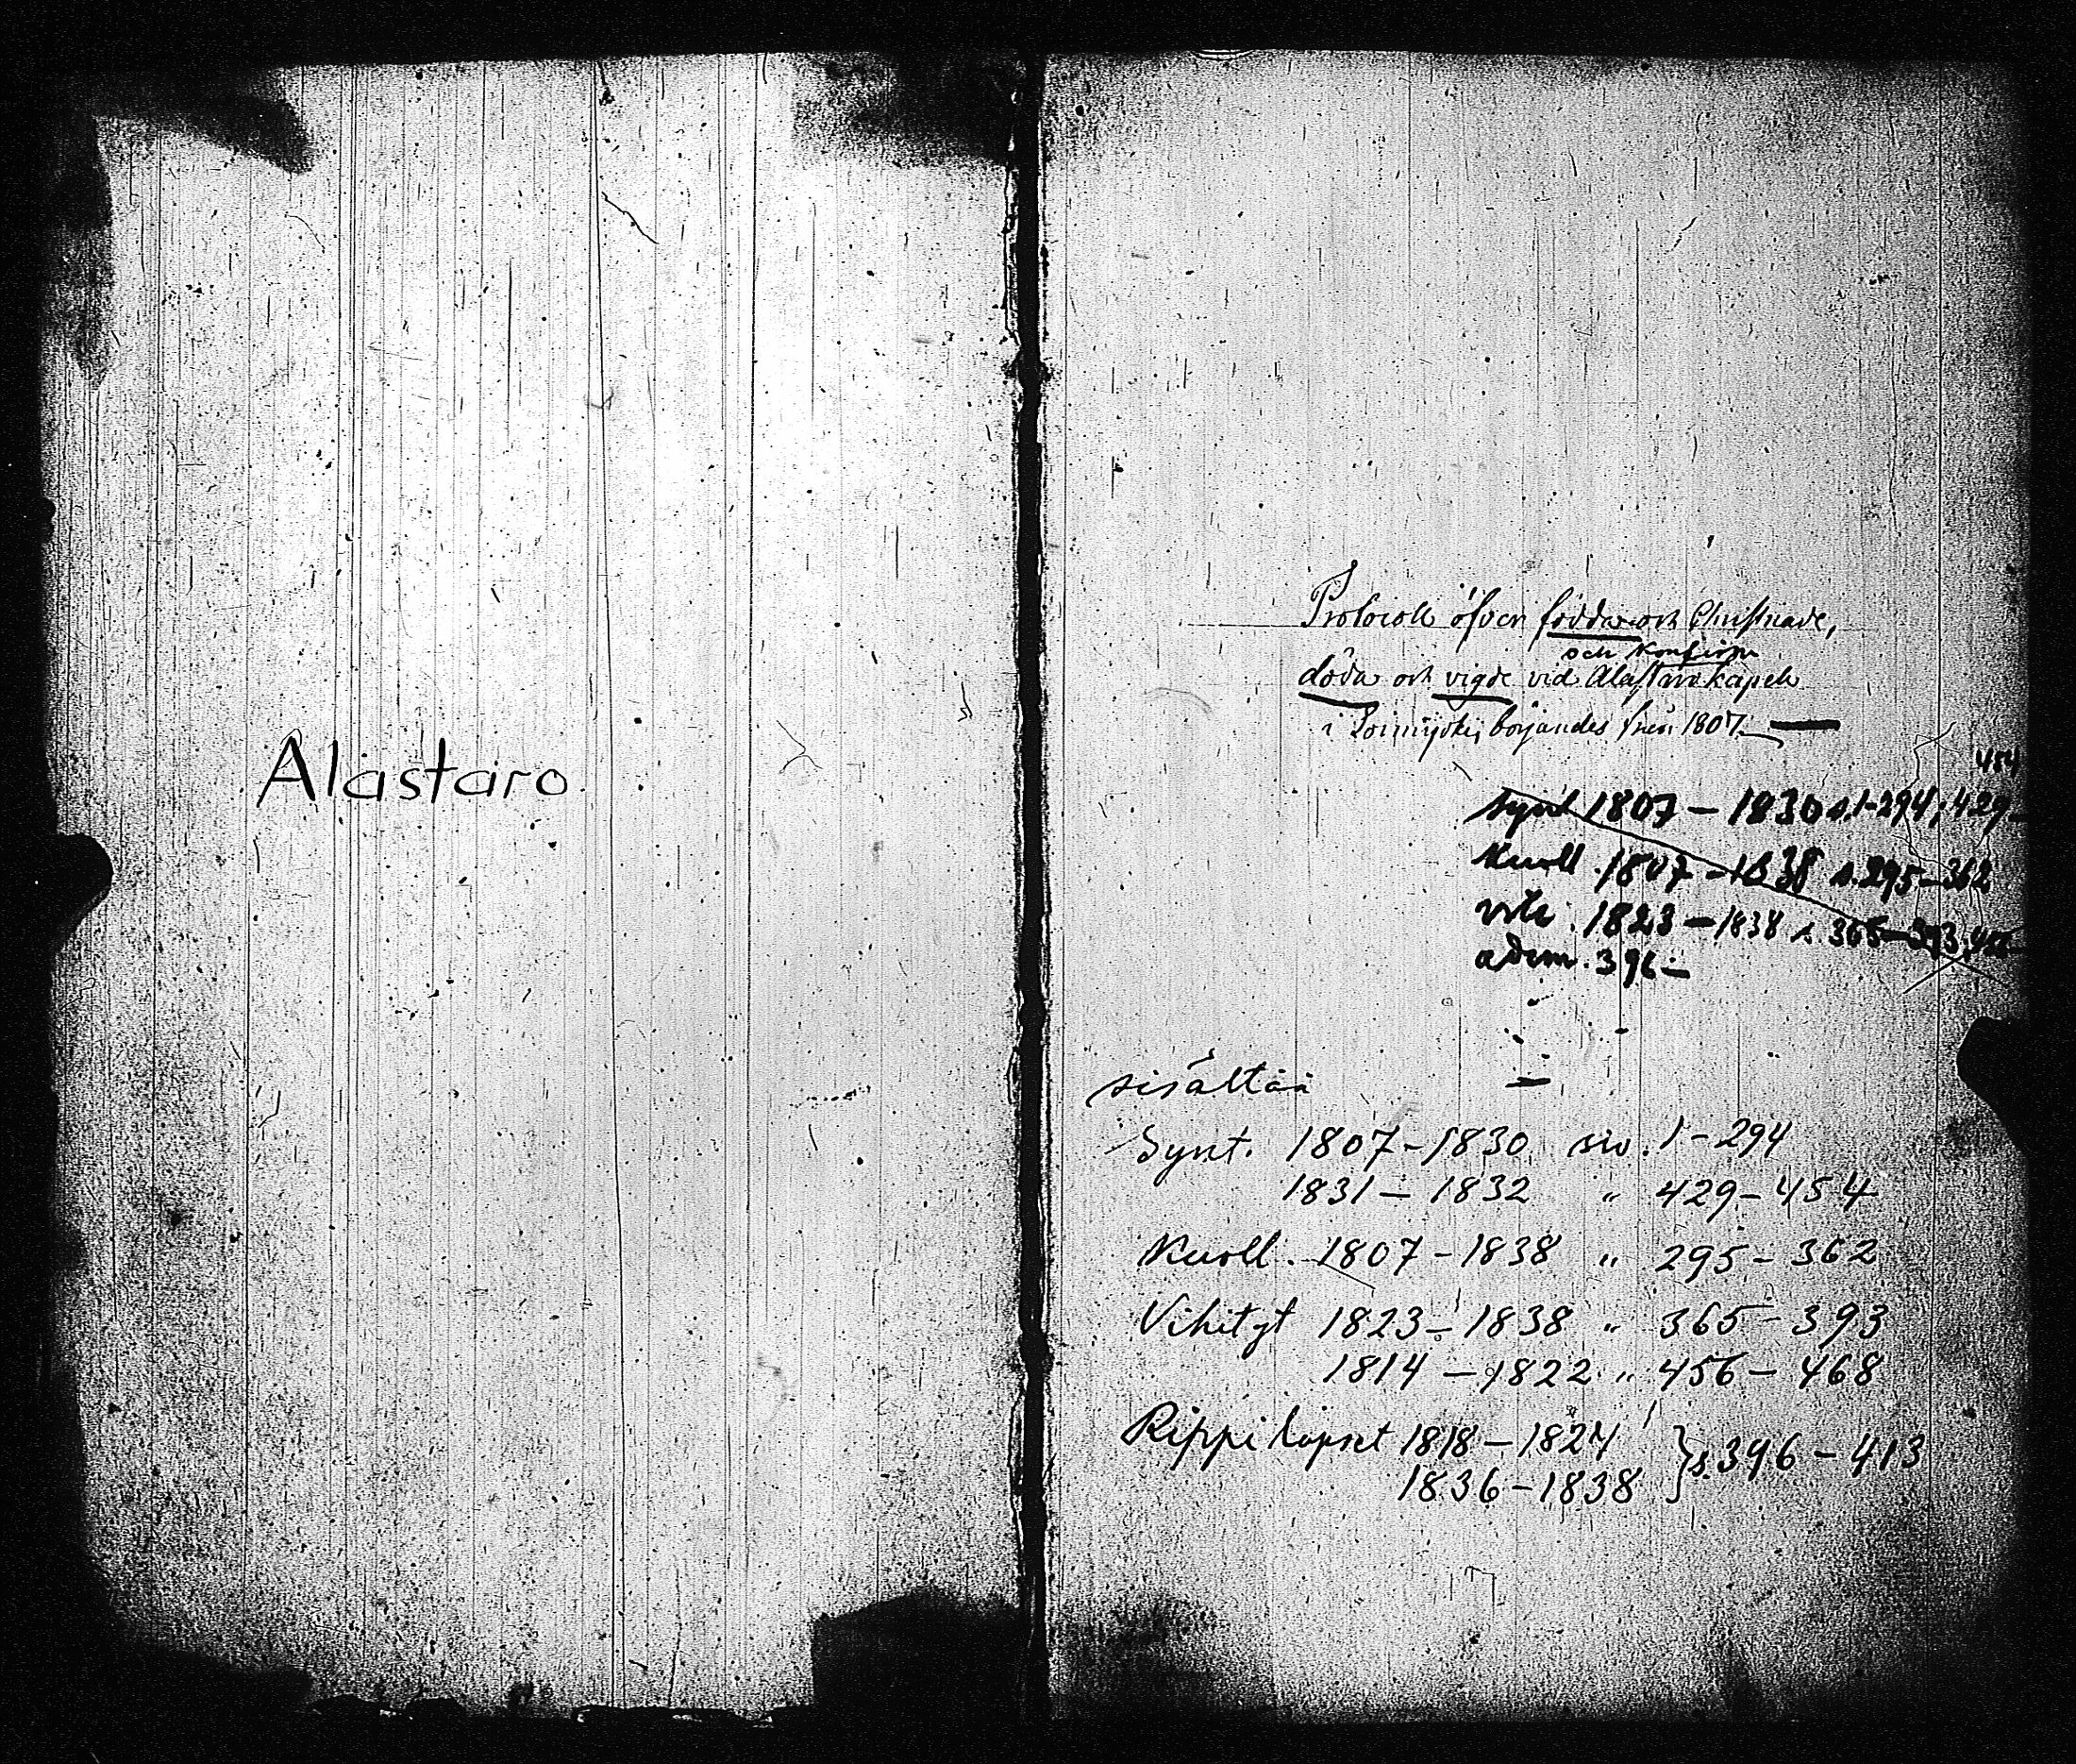 Alastaro
Protocoll öfver födda och Christnade,
och Konfirm
döda och vigde vid Alastaro kapell
i Loimijoki, börjandes från 1807.
454
synt 1807 – 1830 s. 1-294, 429-
Kuoll. 1807 – 1838 s. 295-362
vih. 1823 – 1838 s. 365-393,
adm. 396 –
sisältää
Synt. 1807-1830 siv. 1-294
1831 – 1832 " 429-454
Kuoll. 1807-1838 " 295-362
Vihityt 1823-1838 " 365-393
1814-1822 " 456-468
Rippi lapset 1818-1824 } s. 396-413
1836-1838